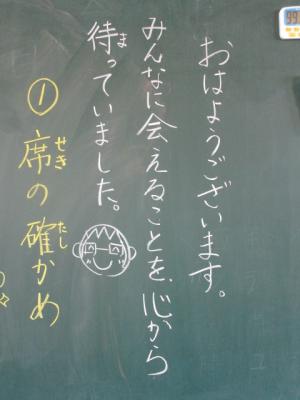 おはようございます。
みんなに会えることを、心から
待っていました。
①席の確かめ